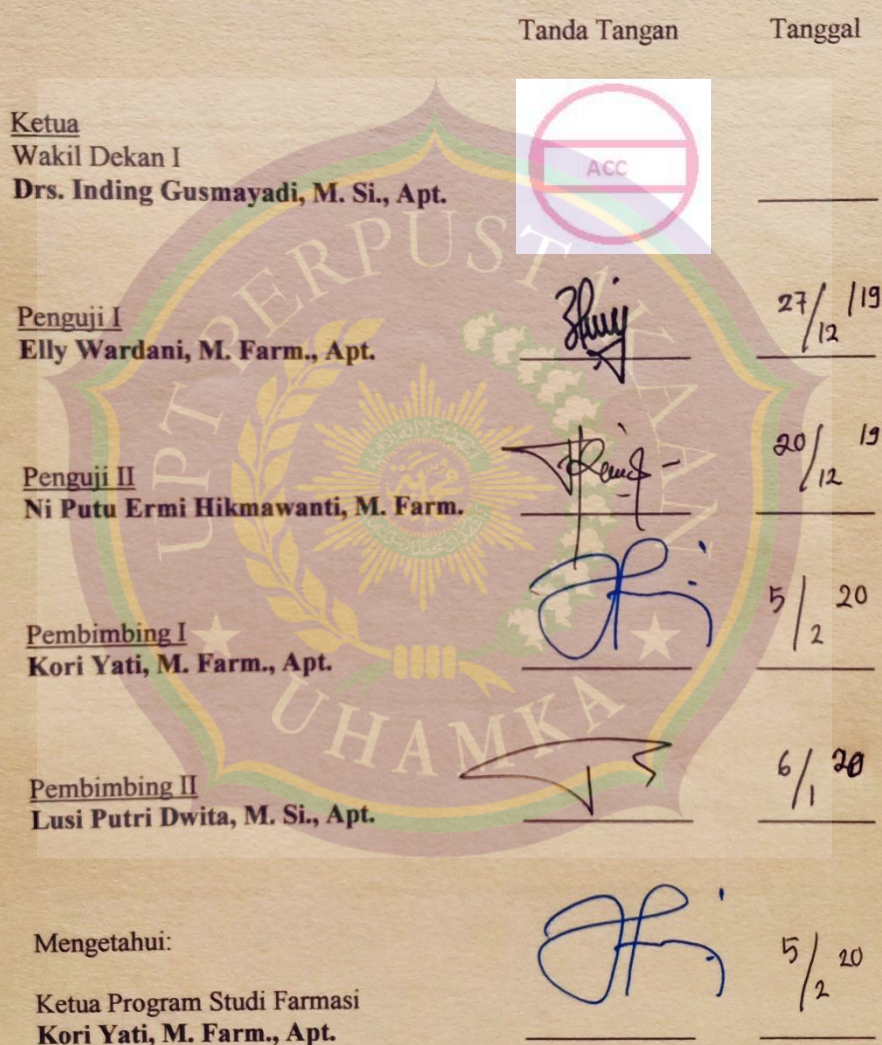 Tanda Tangan Tanggal
Ketua
Wakil Dekan I
Drs. Inding Gusmayadi, M. Si., Apt.
ACC
Penguji I
Elly Wardani, M. Farm., Apt.
27/12/19
Penguji II
Ni Putu Ermi Hikmawanti, M. Farm.
20/12 19
Pembimbing I
Kori Yati, M. Farm., Apt.
5/2 20
Pembimbing II
Lusi Putri Dwita, M. Si., Apt.
6/1 20
Mengetahui:
5/2 20
Ketua Program Studi Farmasi
Kori Yati, M. Farm., Apt.
UPT PERPUSTAKAAN
UHAMKA